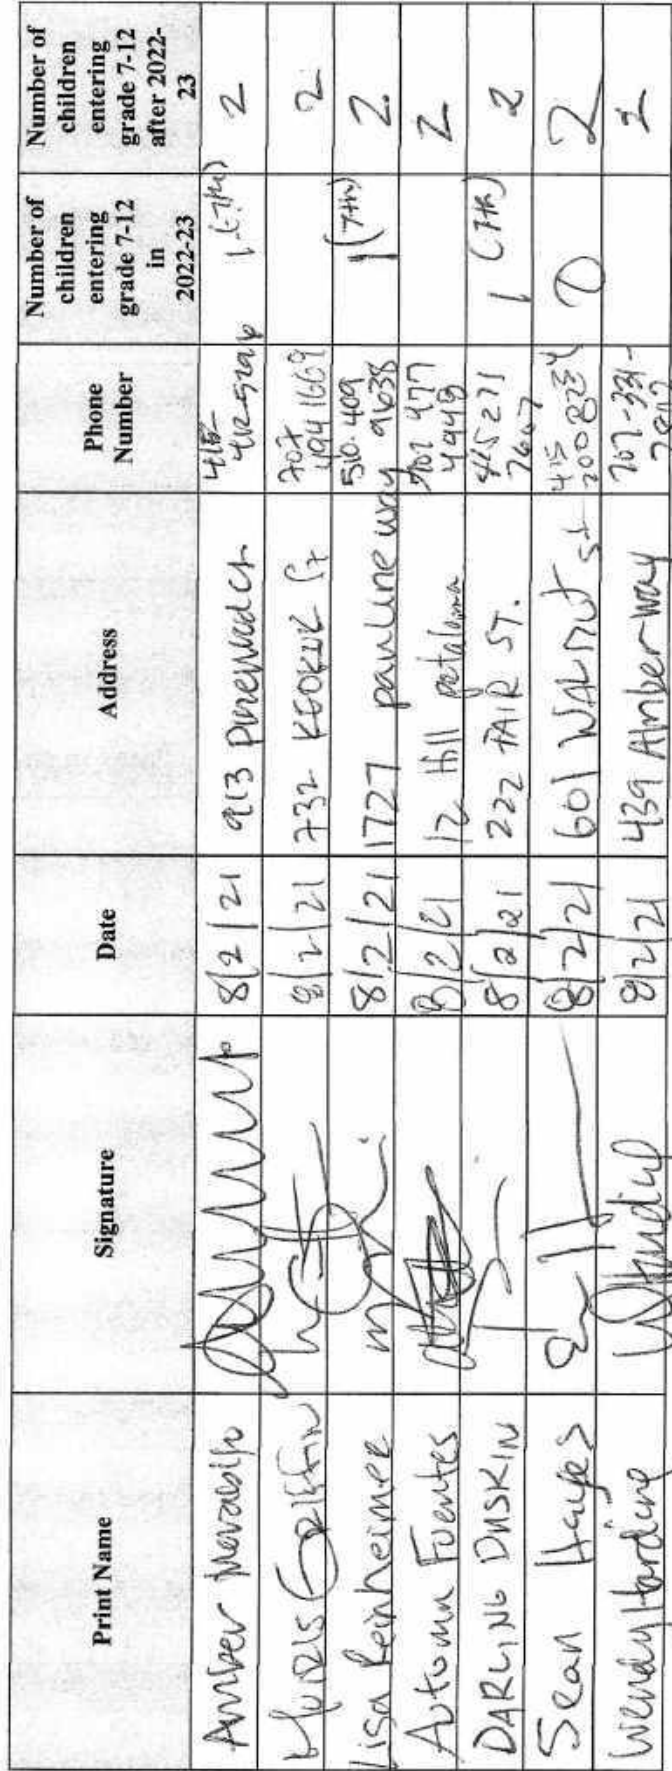 Print Name Signature Date Address Phone Number Number of children entering grade 7-12 in 2022-23 Number of children entering grade 7-12 after 2022-23
Amber 8/2/21 913 Pinewood Ct 415- 1 (7th) 2
8/2/21 732 KEOKUK St 707 494 1669 2
Lisa Reinheimer 8/2/21 1727 pauline way 510. 409 9638 1 (7th) 2
Autumn Fuentes 8/2/21 12 Hill petaluma 707 477 2
DARLING DUSKIN 8/2/21 222 FAIR ST. 415 271 7667 1 (7th) 2
Sean Hayes 8/2/21 601 WALNUT st 415 0 2
Wendy Harding 8/2/21 439 Amber way 707-331-